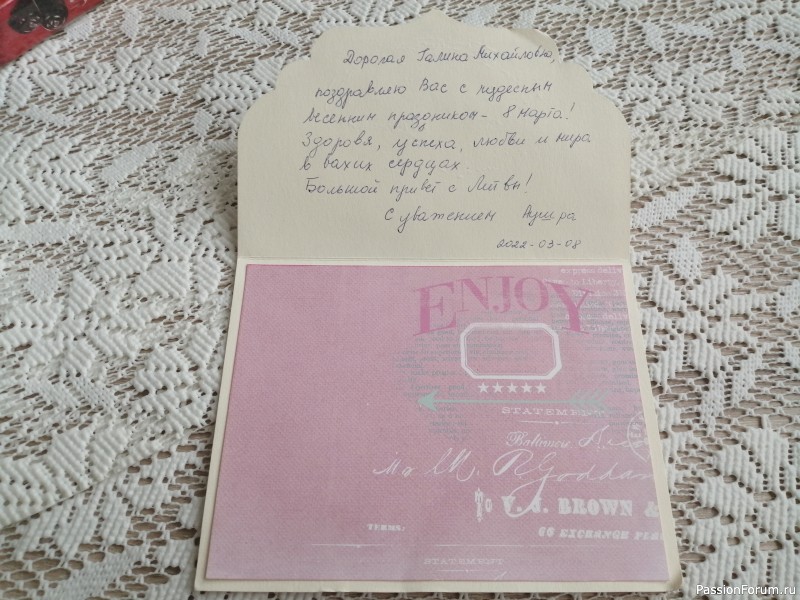 Дорогая Галина Михайловна,
поздравляю Вас с чудесным
весенним праздником - 8 марта!
Здоровя, успеха, любви и мира
в ваших сердцах.
Большой привет с Литвы!
С уважением Аушра
2022-03-08
ENJOY
express deliv
★★★★★
STATEMENT
Baltimore
Mr
To V. J. BROWN &
60 EXCHANGE PLAC
TERMS:
STATEMENT
PassionForum.ru